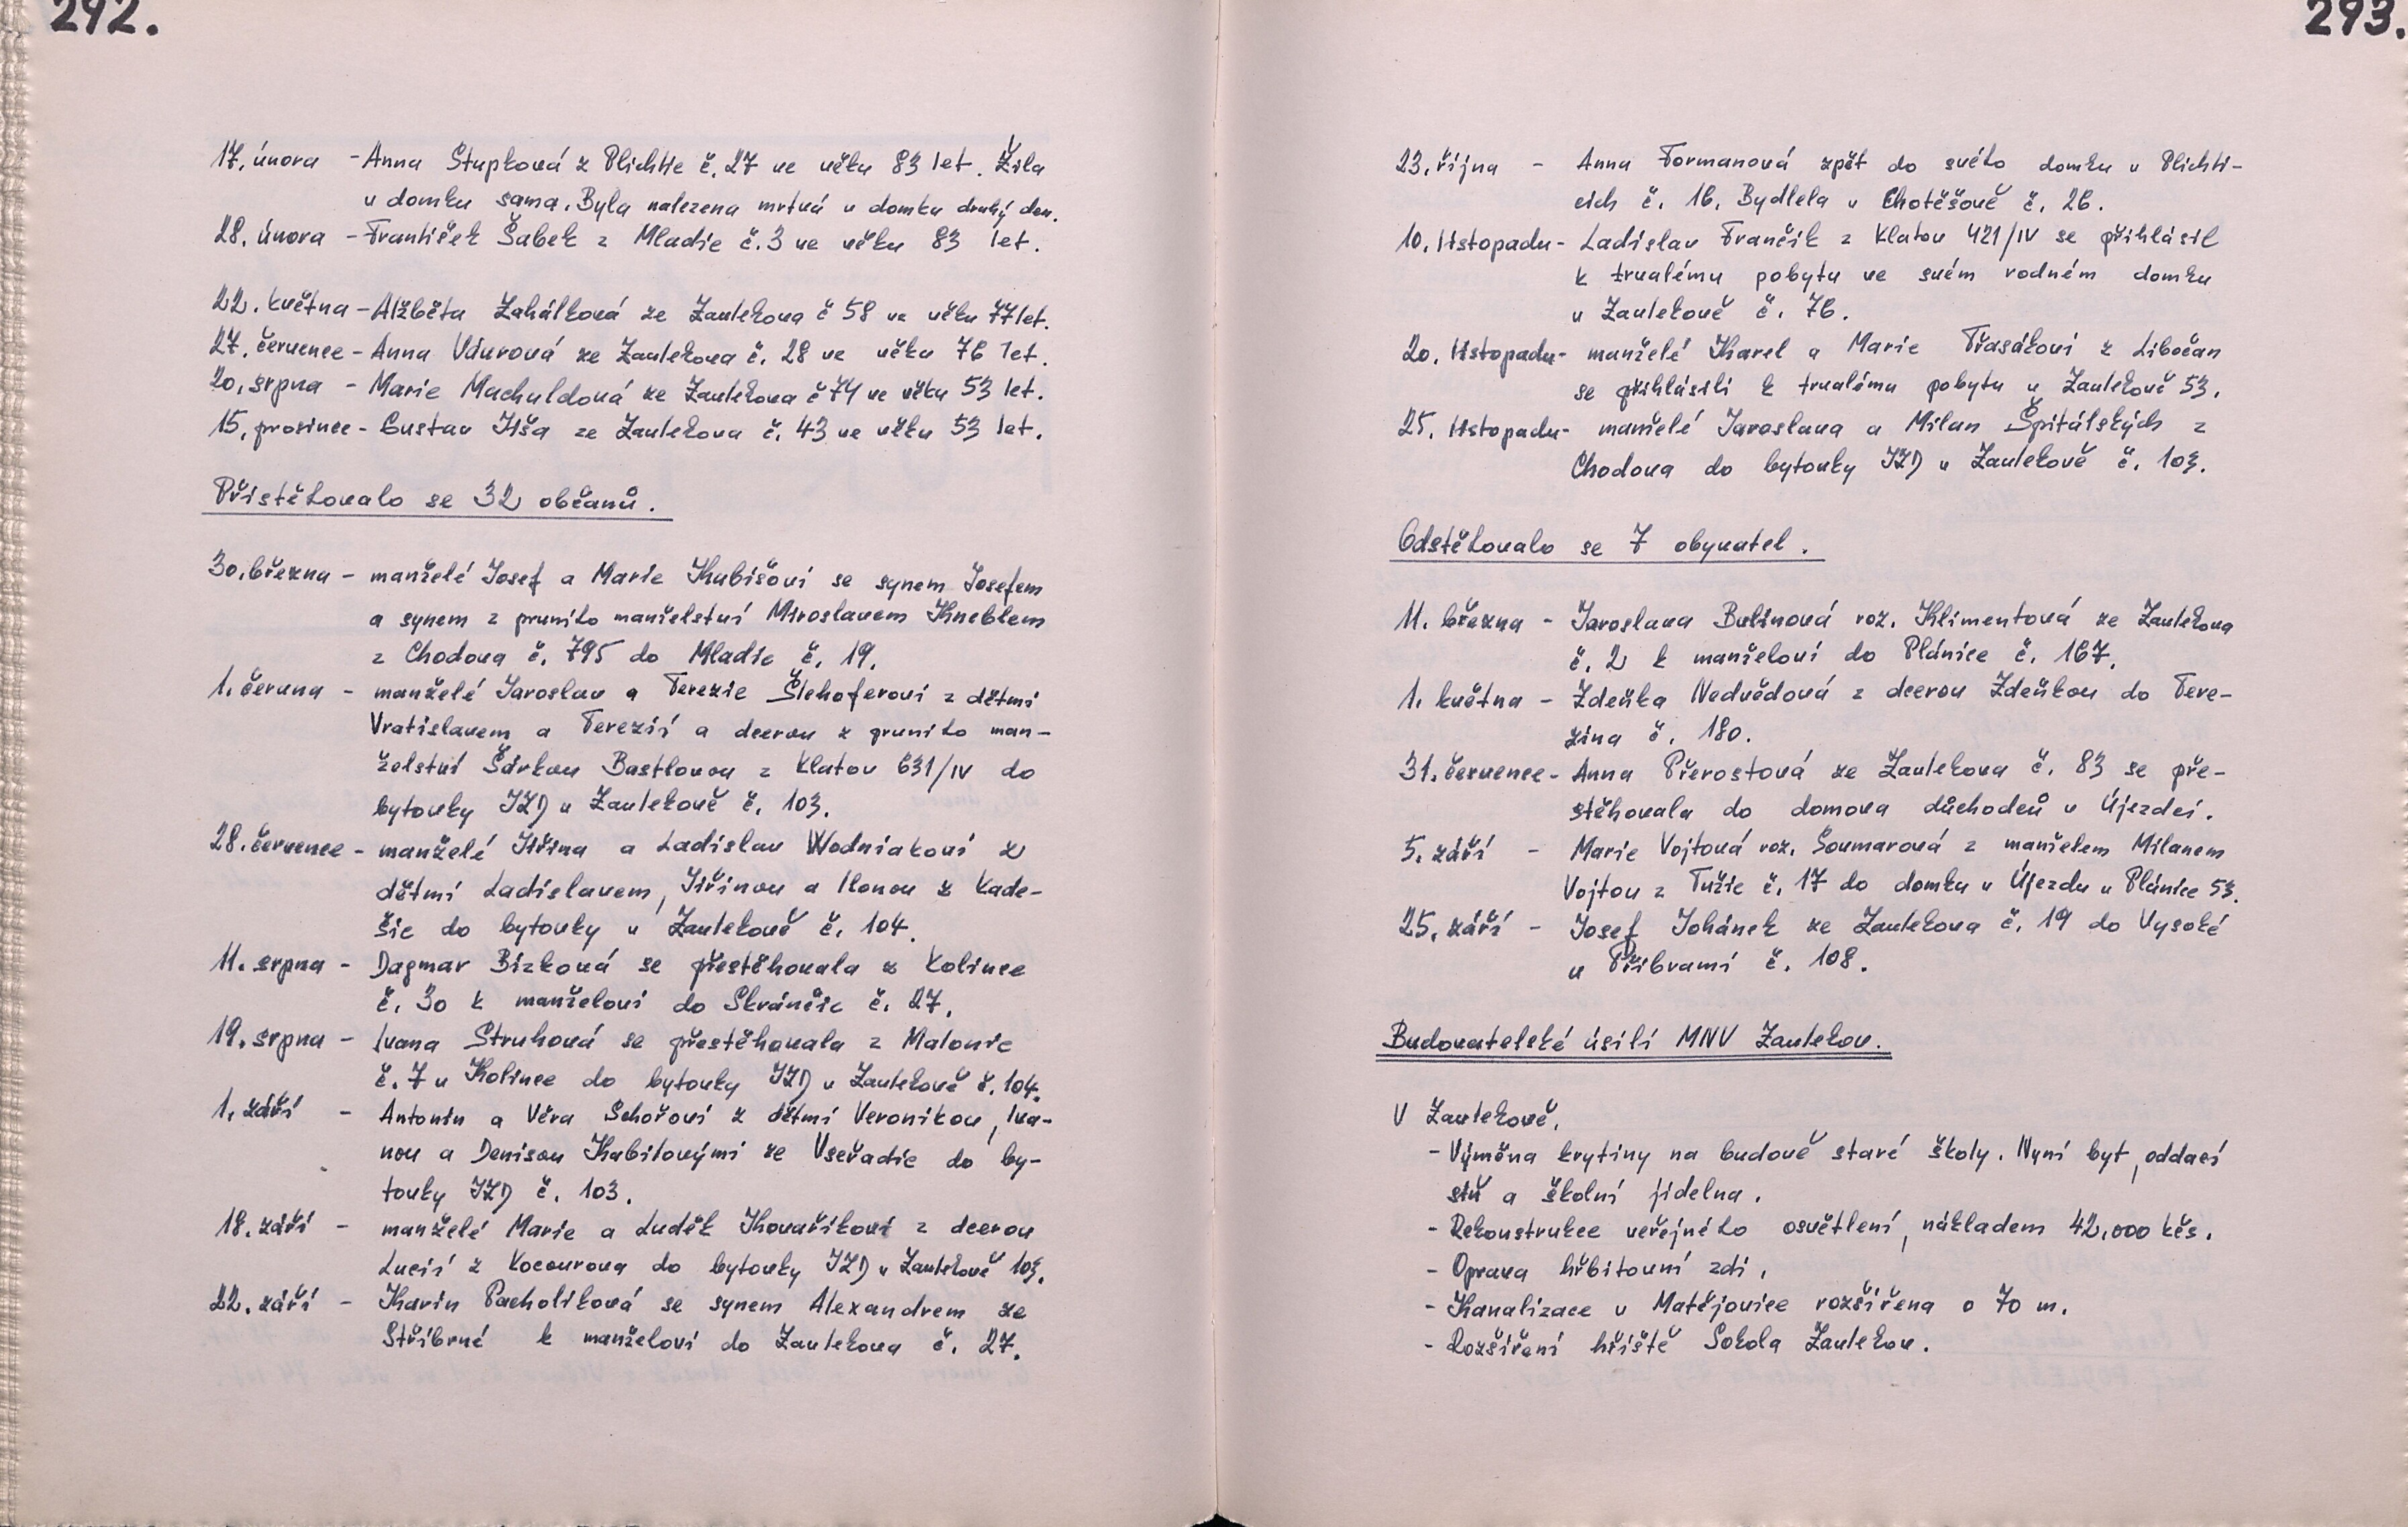 292.
17. února - Anna Stupková z Plichtic č. 27 ve věku 83 let. Žila
v domku sama. Byla nalezena mrtvá v domku druhý den.
28. února - František Šabek z Mladic č. 3 ve věku 83 let.
22. května - Alžběta Zahálková ze Zavlekova č 58 ve věku 77 let.
27. července - Anna Vdurová ze Zavlekova č. 28 ve věku 76 let.
20. srpna - Marie Machuldová ze Zavlekova č 74 ve věku 53 let.
15. prosince - Gustav Jíša ze Zavlekova č. 43 ve věku 53 let.
Přistěhovalo se 32 občanů.
30. března - manželé Josef a Marie Kubišovi se synem Josefem
a synem z prvního manželství Miroslavem Kneblem
z Chodova č. 795 do Mladic č. 19.
1. června - manželé Jaroslav a Terezie Štehoferovi z dětmi
Vratislavem a Terezií a dcerou z prvního man-
želství Šárkou Bastlovou z Klatov 631/IV do
bytovky JZD v Zavlekově č. 103.
28. července - manželé Jiřina a Ladislav Wodniakovi z
dětmi Ladislavem, Jiřinou a Ilonou z Kade-
šic do bytovky v Zavlekově č. 104.
11. srpna - Dagmar Bízková se přestěhovala z Kolince
č. 30 k manželovi do Skránčic č. 27.
19. srpna - Ivana Struhová se přestěhovala z Malonic
č. 7 u Kolince do bytovky JZD v Zavlekově č. 104.
1. září - Antonín a Věra Schořovi z dětmi Veronikou, Iva-
nou a Denisou Kabilovými ze Vseřadic do by-
tovky JZD č. 103.
18. září - manželé Marie a Luděk Kovaříkovi z dcerou
Lucií z Kocourova do bytovky JZD v Zavlekově 103.
22. září - Karin Pacholíková se synem Alexandrem ze
Stříbrné k manželovi do Zavlekova č. 27.
293.
23. října - Anna Formanová zpět do svého domku v Plichti-
cích č. 16. Bydlela v Chotěšově č. 26.
10. listopadu - Ladislav Frančík z Klatov 421/IV se přihlásil
k trvalému pobytu ve svém rodném domku
v Zavlekově č. 76.
20. listopadu - manželé Karel a Marie Třasákovi z Libočan
se přihlásili k trvalému pobytu v Zavlekově 53.
25. listopadu - manželé Jaroslava a Milan Špitálských z
Chodova do bytovky JZD v Zavlekově č. 103.
Odstěhovalo se 7 obyvatel.
11. března - Jaroslava Bulínová roz. Klimentová ze Zavlekova
č. 2 k manželovi do Plánice č. 167.
1. května - Zdeňka Nedvědová z dcerou Zdeňkou do Tere-
zína č. 180.
31. července - Anna Přerostová ze Zavlekova č. 83 se pře-
stěhovala do domova důchodců v Újezdci.
5. září - Marie Vojtová roz. Šoumarová z manželem Milanem
Vojtou z Tužic č. 17 do domku v Újezdu u Plánice 53.
25. září - Josef Johánek ze Zavlekova č. 19 do Vysoké
u Příbrami č. 108.
Budovatelské úsilí MNV Zavlekov.
V Zavlekově.
- Výměna krytiny na budově staré školy. Nyní byt, oddací
síň a školní jídelna.
- Rekonstrukce veřejného osvětlení, nákladem 42.000 kčs.
- Oprava hřbitovní zdi.
- Kanalizace v Matějovice rozšířena o 70 m.
- Rozšíření hřiště Sokola Zavlekov.